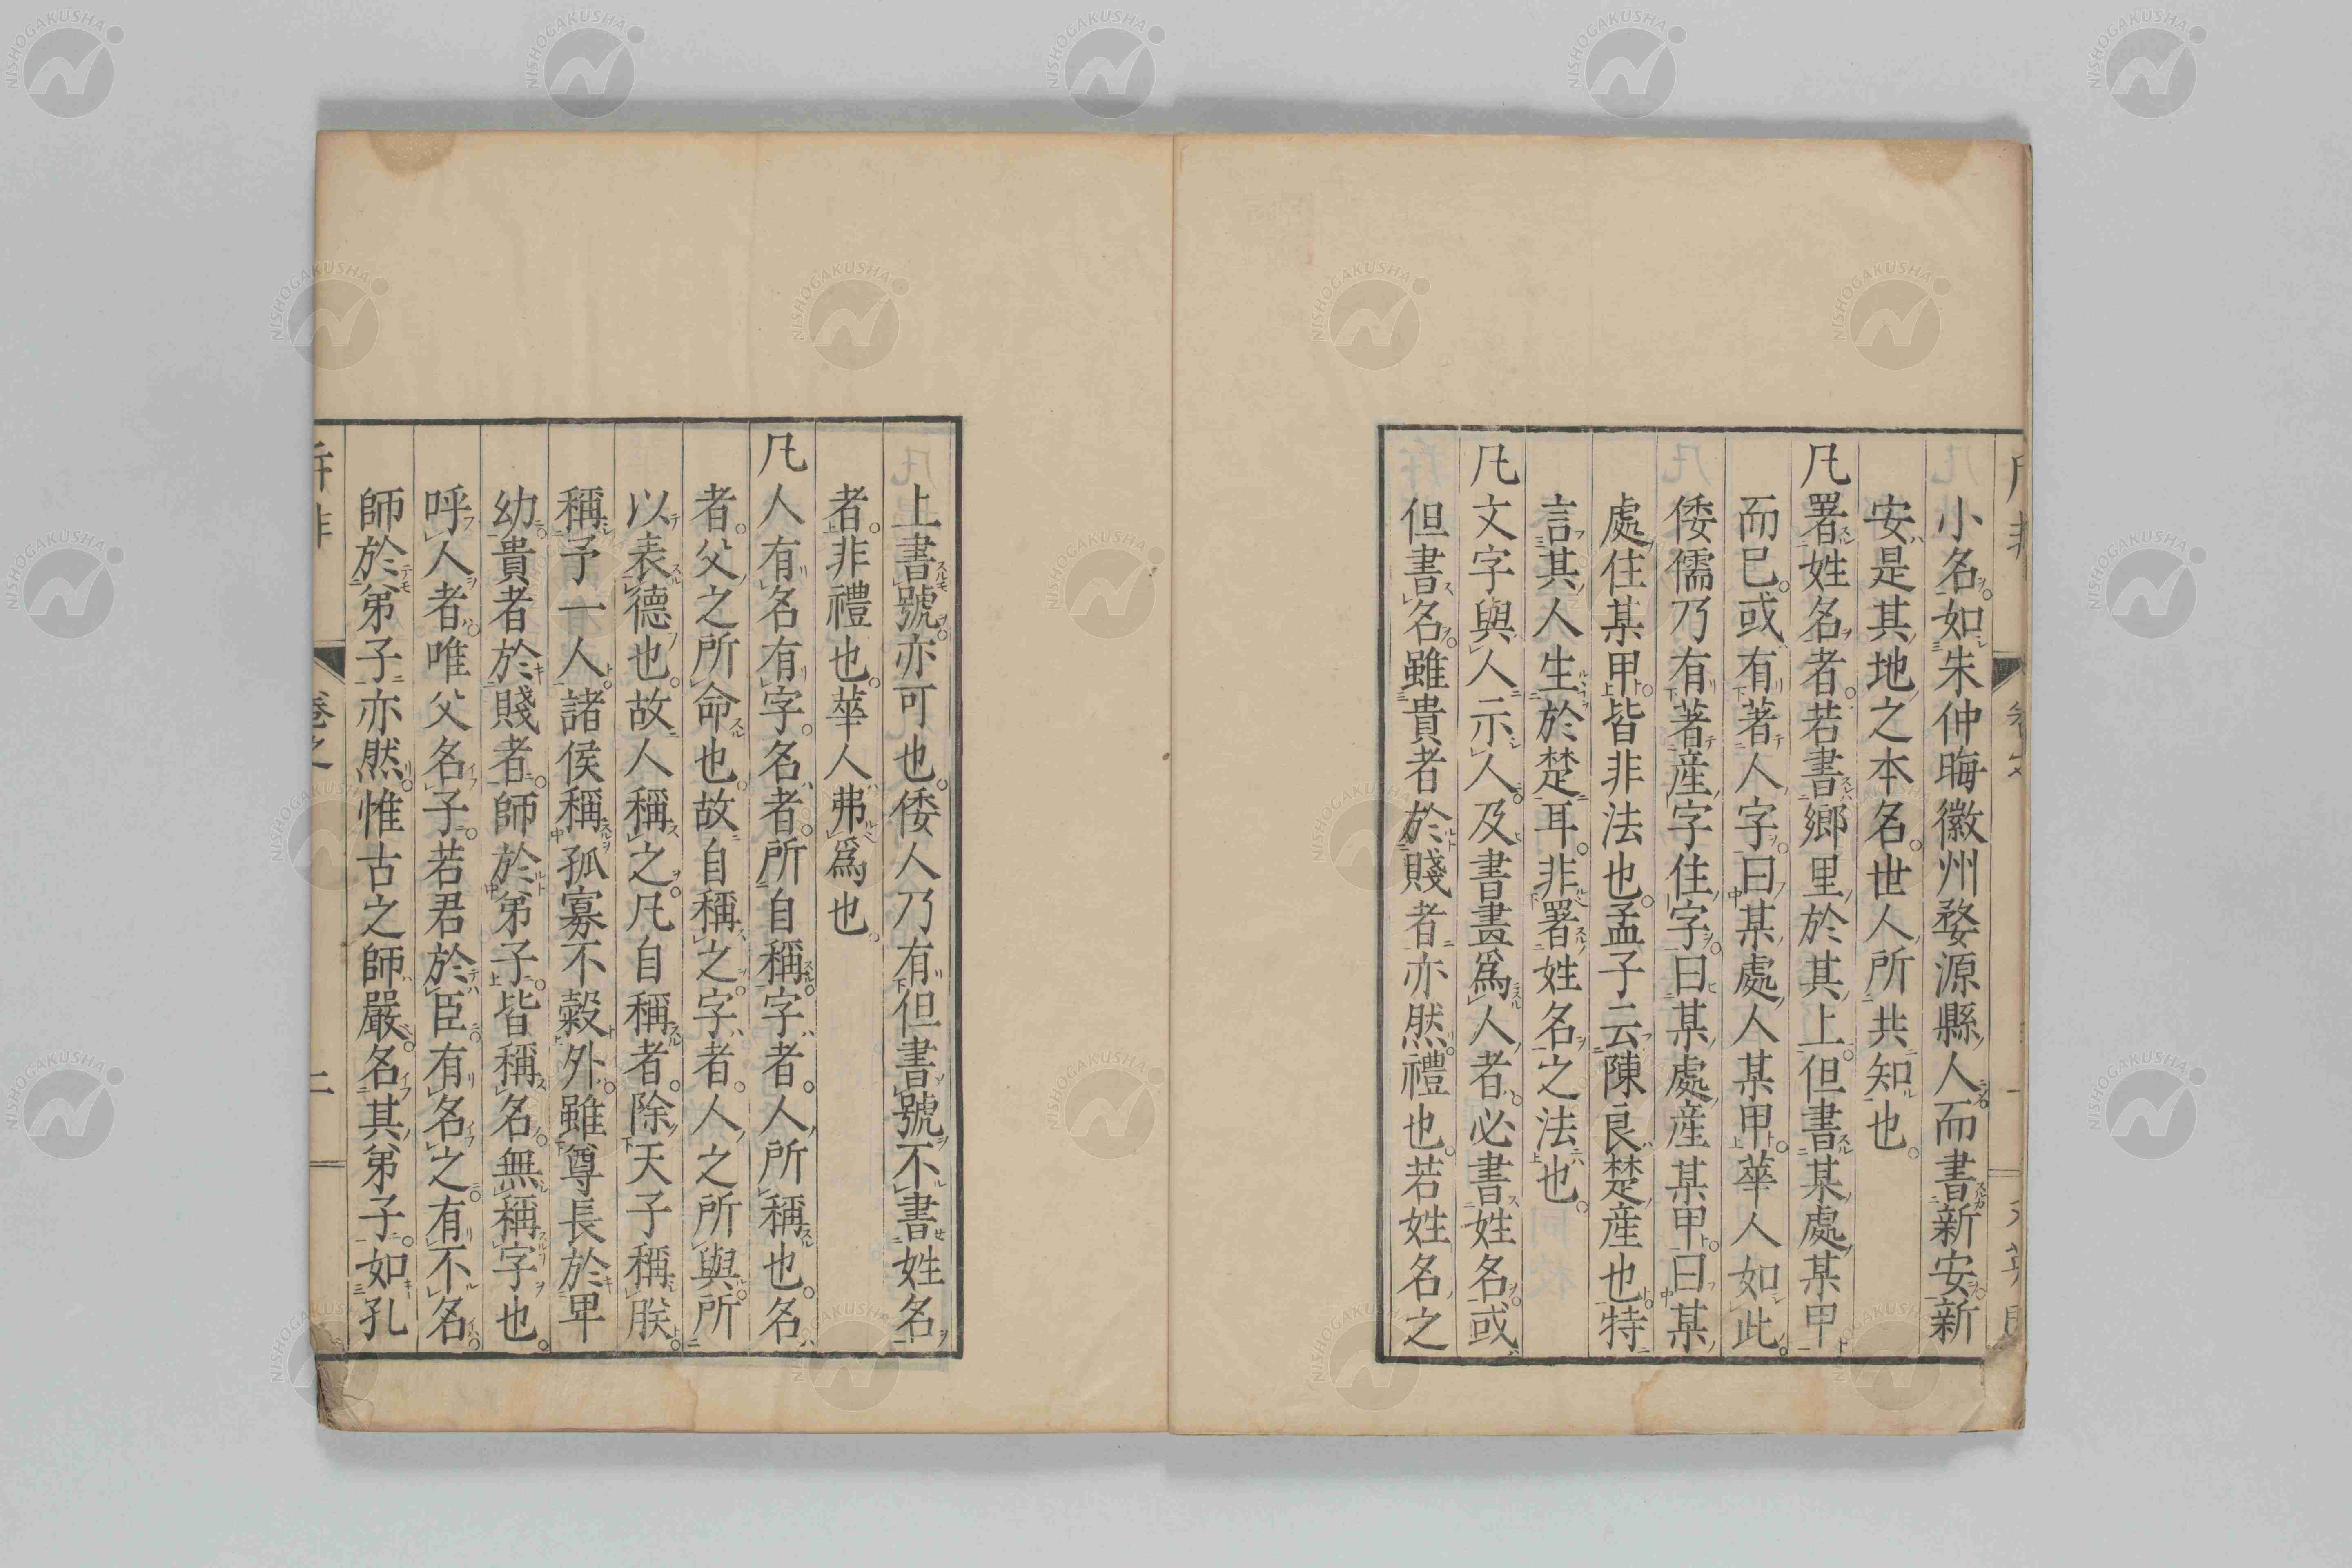 小名如朱仲晦徽州婺源縣人而書新安新
安是其地之本名世人所共知也
凡署姓名者若書鄉里於其上但書某處某甲
而已或有著人字曰某處人某甲華人如此
倭儒乃有著産字住字曰某處産某甲曰某
處住某甲皆非法也孟子云陳良楚産也特
言其人生於楚耳非署姓名之法也
凡文字與人示人及書畫爲人者必書姓名或
但書名雖貴者於賤者亦然禮也若姓名之
上書號亦可也倭人乃有但書號不書姓名
者非禮也華人弗爲也
凡人有名有字名者所自稱字者人所稱也名
者父之所命也故自稱之字者人之所與所
以表德也故人稱之凡自稱者除天子稱朕
稱予一人諸侯稱孤寡不穀外雖尊長於卑
幼貴者於賤者師於弟子皆稱名無稱字也
呼人者唯父名子若君於臣有名之有不名
師於弟子亦然惟古之師嚴名其弟子如孔